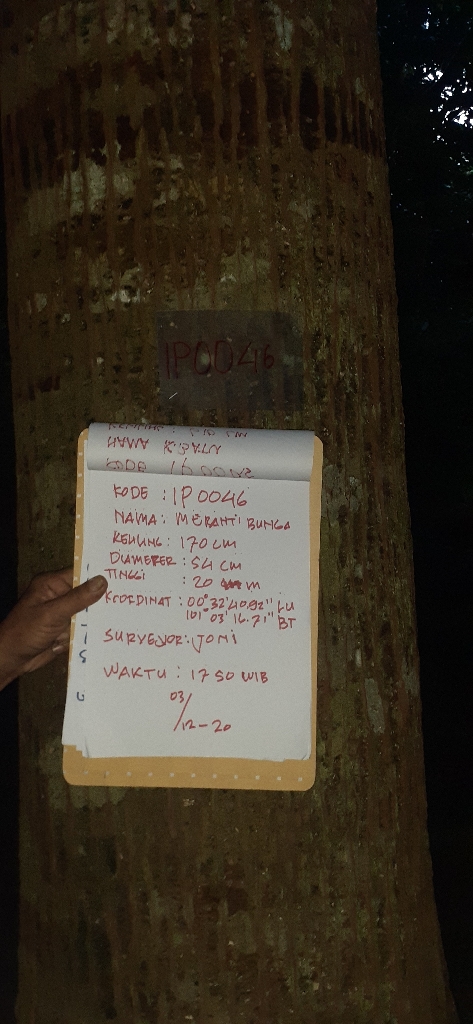 IP0046
KODE : IP0046
NAMA : MERANTI BUNGA
KELILING : 170 CM
DIAMETER : 54 CM
TINGGI : 20 m
KOORDINAT : 00°32'40.92" LU
101°03'16.71" BT
SURVEYOR : JONI
WAKTU : 17 50 WIB
03/
12-20